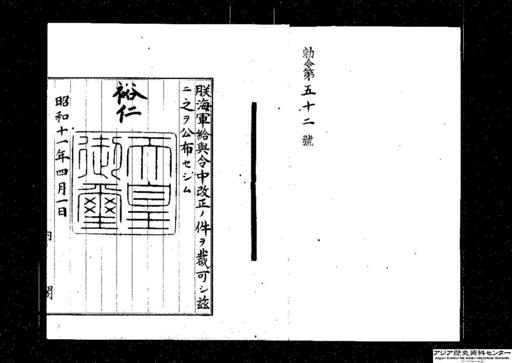 勅令第五十二號
朕海軍給與令中改正ノ件ヲ裁可シ茲
ニ之ヲ公布セシム
裕仁
天皇御璽
昭和十一年四月一日
内閣
アジア歴史資料センター
Japan Center for Asian Historical Records